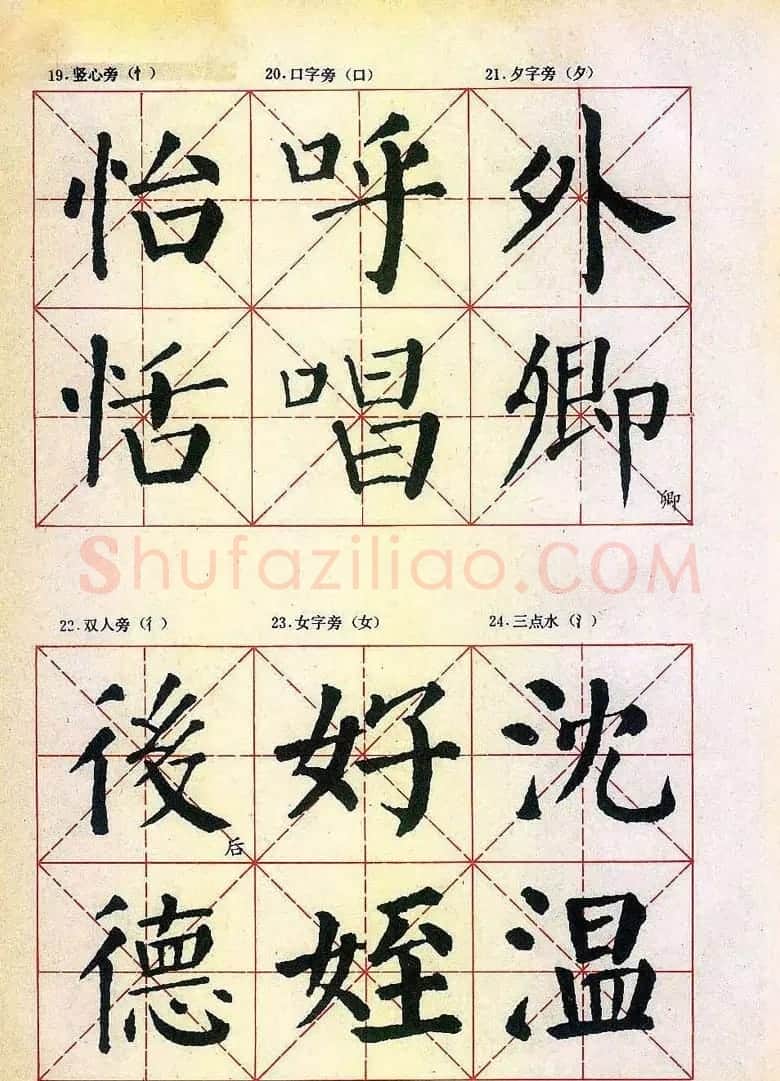 19.竖心旁（忄） 20.口字旁（口） 21.夕字旁（夕）
怡 呼 外
恬 唱 卿
卿
Shufaziliao.COM
22.双人旁（彳） 23.女字旁（女） 24.三点水（氵）
後 好 沈
后
德 姪 温